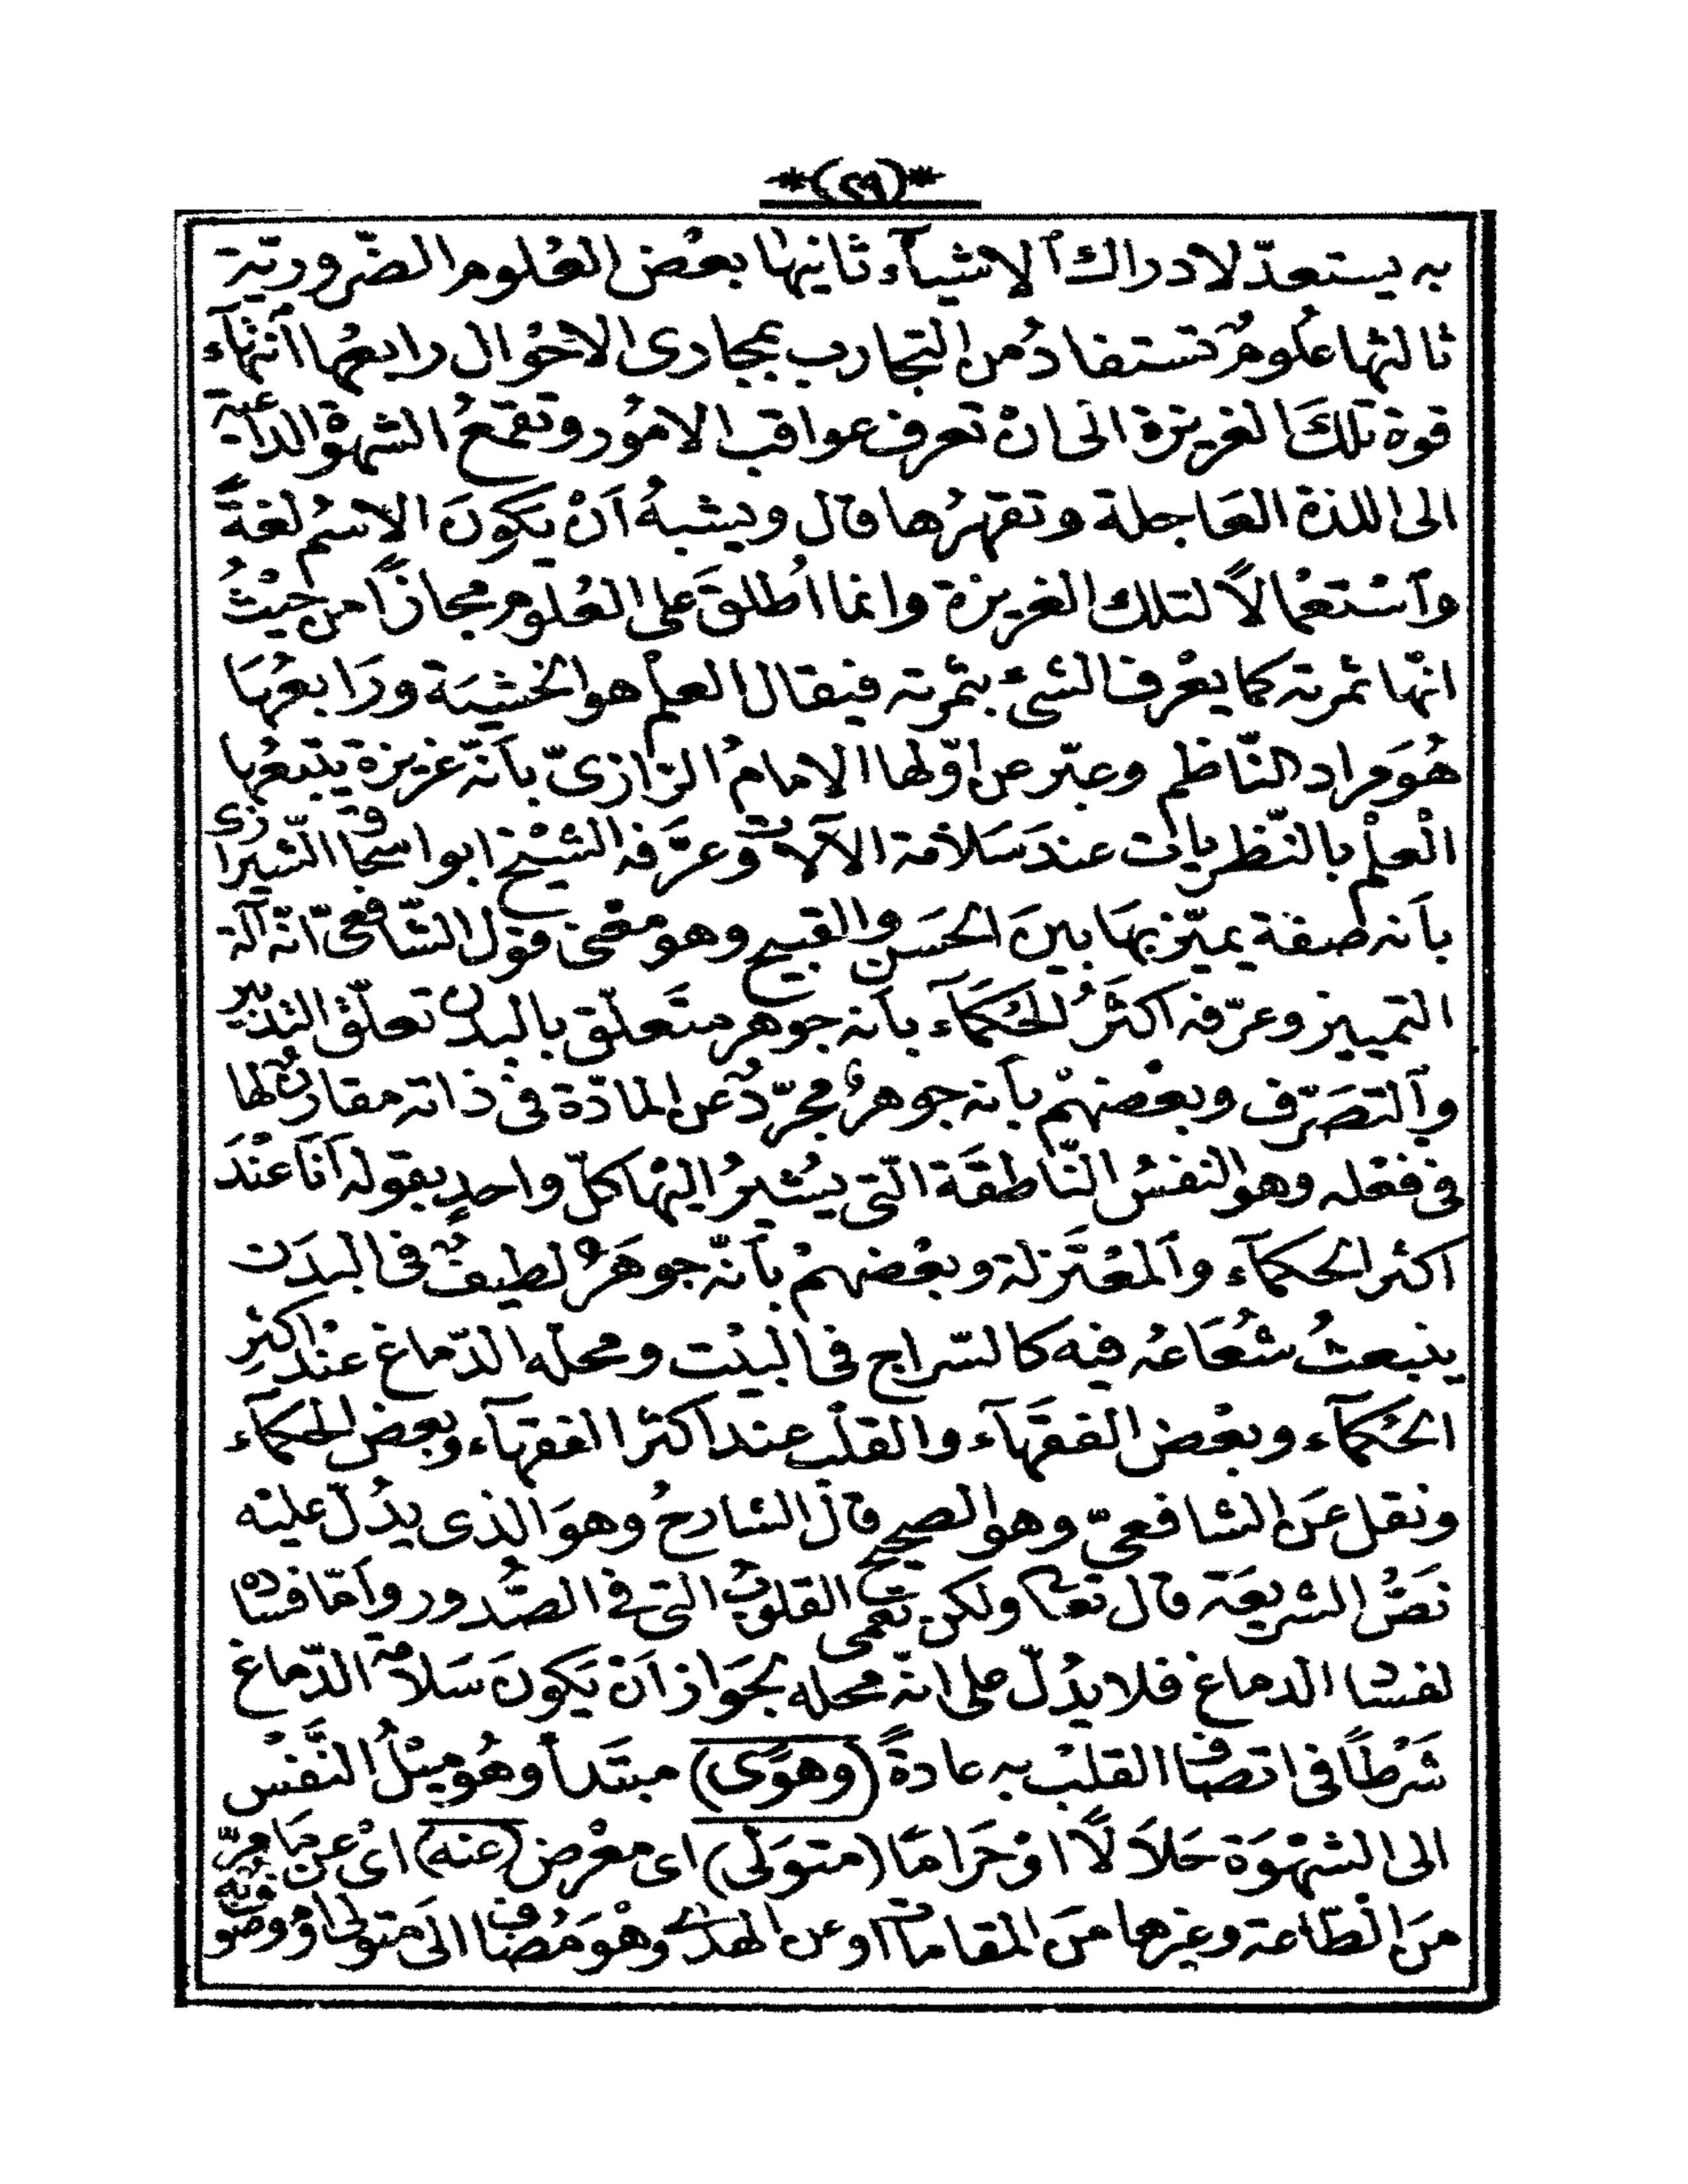 *(٢٩)*
به يستعدّ لادراك ٱلاشيآء ثانيها بعْض العُلوم الضّروريّة
ثالثها علُومٌ تستفادُ من التجارب بمجارى الاحْوال رابعها اَنتهآء
قوة تلكَ الغريزة الى ان تعرف عواقب الامُور وتقمعُ الشهوة الداعية
الى اللذة العَاجلة وتقهرُها قال ويشبهُ اَنْ يكونَ الاسْم لغةً
وٱسْتعْمالاً لتلك الغريزة وانما اُطلقَ على العُلوم مجازًا من حيْثُ
انّها ثمرته كما يعْرف الشئ بثمرته فيقال العلْم هو الخشيَة ورَابعُهَا
هُوَ مراد النّاظم وعبّر عن اوّلها الامامُ الرّازىّ باَنّه غريزة يتبعُها
الْعلْم بالنّظريات عندَ سَلاَمة الآلات وعرَّفه الشيْخ ابو اسحاق الشّيرازى
باَنه صفة يميّز بهَا بينَ الحَسَن والقبيح وهو معْنى قوْل الشّافعىّ انّه آلة
التمييز وعرّفه اكثَرُ الحُكَمَآء باَنه جوهر متَعلّق بالبدن تعلّق التدبير
وٱلتصَرّف وبعْضهمْ باَنه جوهرٌ مجرّدٌ عن المادّة فى ذاته مقارنٌ لها
فى فعْله وهو النفسُ النّاطقَة الّتى يُشيرُ اليْها كلّ واحدٍ بقوله اَنَا عنْدَ
اكثر الحكمآء وٱلمعْتَزلة وبعْضهمْ باَنّه جوهَرٌ لطيفٌ فى البدَن
ينبعثُ شُعَاعُه فيه كالسّراج فى البيْت ومحلّه الدّماغ عنْد اكثر
الحُكمآء وبعْض الفقهَآء والقلْب عند اكثر الفقهآء وبعض الحكمآء
ونقل عَن الشافعىّ وهو الصحيح قالَ الشارحُ وهوَ الذى يدُلّ عليْه
نَصّ الشريعَة قال تعالى ولكن تعمى القلوبُ التى فى الصُّدور واَمّا فساده
لفساد الدماغ فلا يدُلّ على انّه محله لجوَاز اَنْ يَكونَ سَلاَمة الدّماغ
شَرْطًا فى اتصَاف القلبْ به عادةً (وهوًى) مبتَدأ وهُو ميْلُ النَّفْس
الى الشهْوَة حَلاَلاً اوْ حَرَامًا (متوَلّى) اى معْرض (عنه) اىْ عن مَا مرّ
منَ الطّاعة وغيْرها منَ المقامات او عن الهدى وهْوَ مُضَاف الىَ متولى اوْ موصُوفٌ به